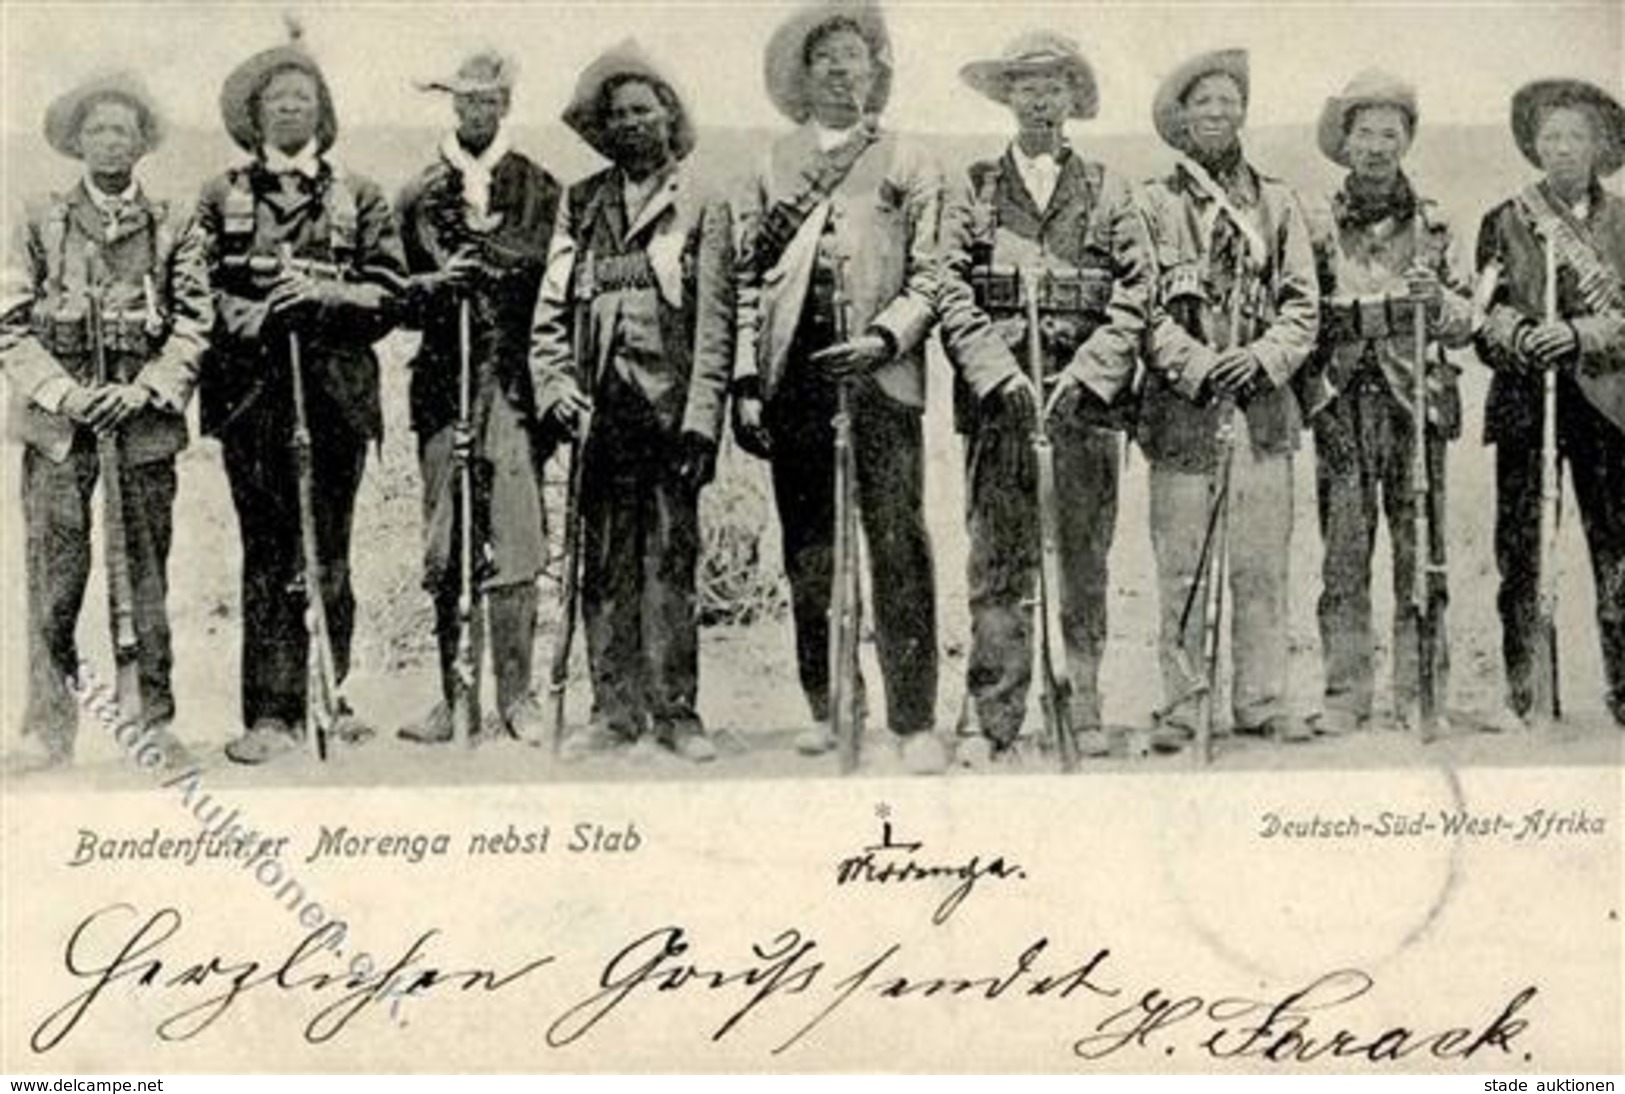 Bandenführer Morenga nebst Stab
Deutsch-Süd-West-Afrika
*
Morenga.
Herzlichen Gruß sendet
stade Auktionen
www.delcampe.net
stade auktionen